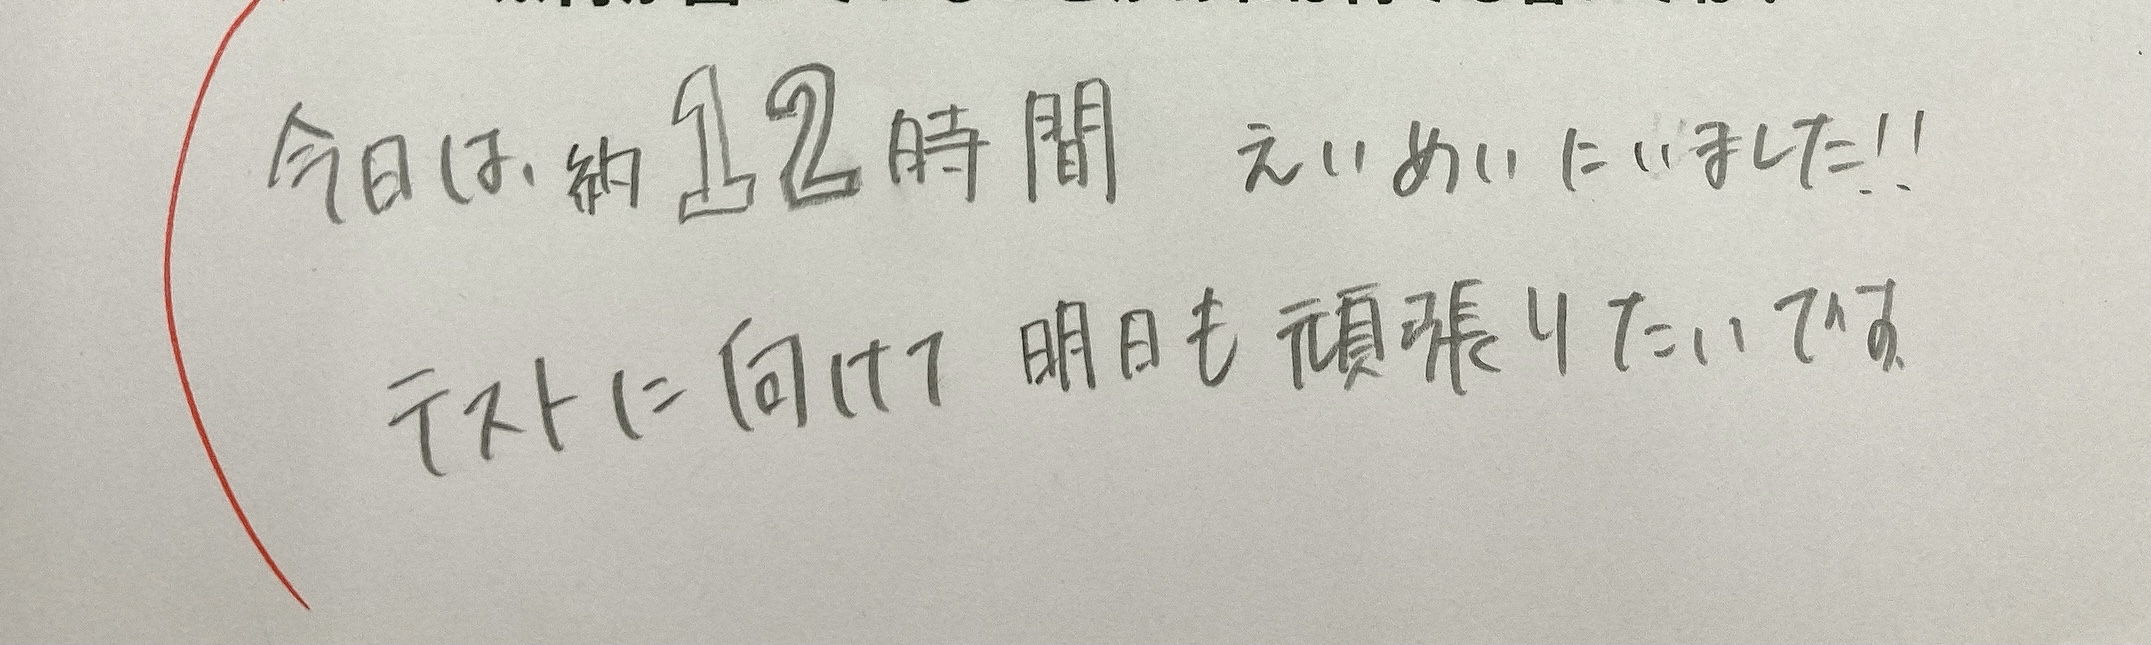 今日は、約12時間 えいめいにいました!!
テストに向けて 明日も頑張りたいです